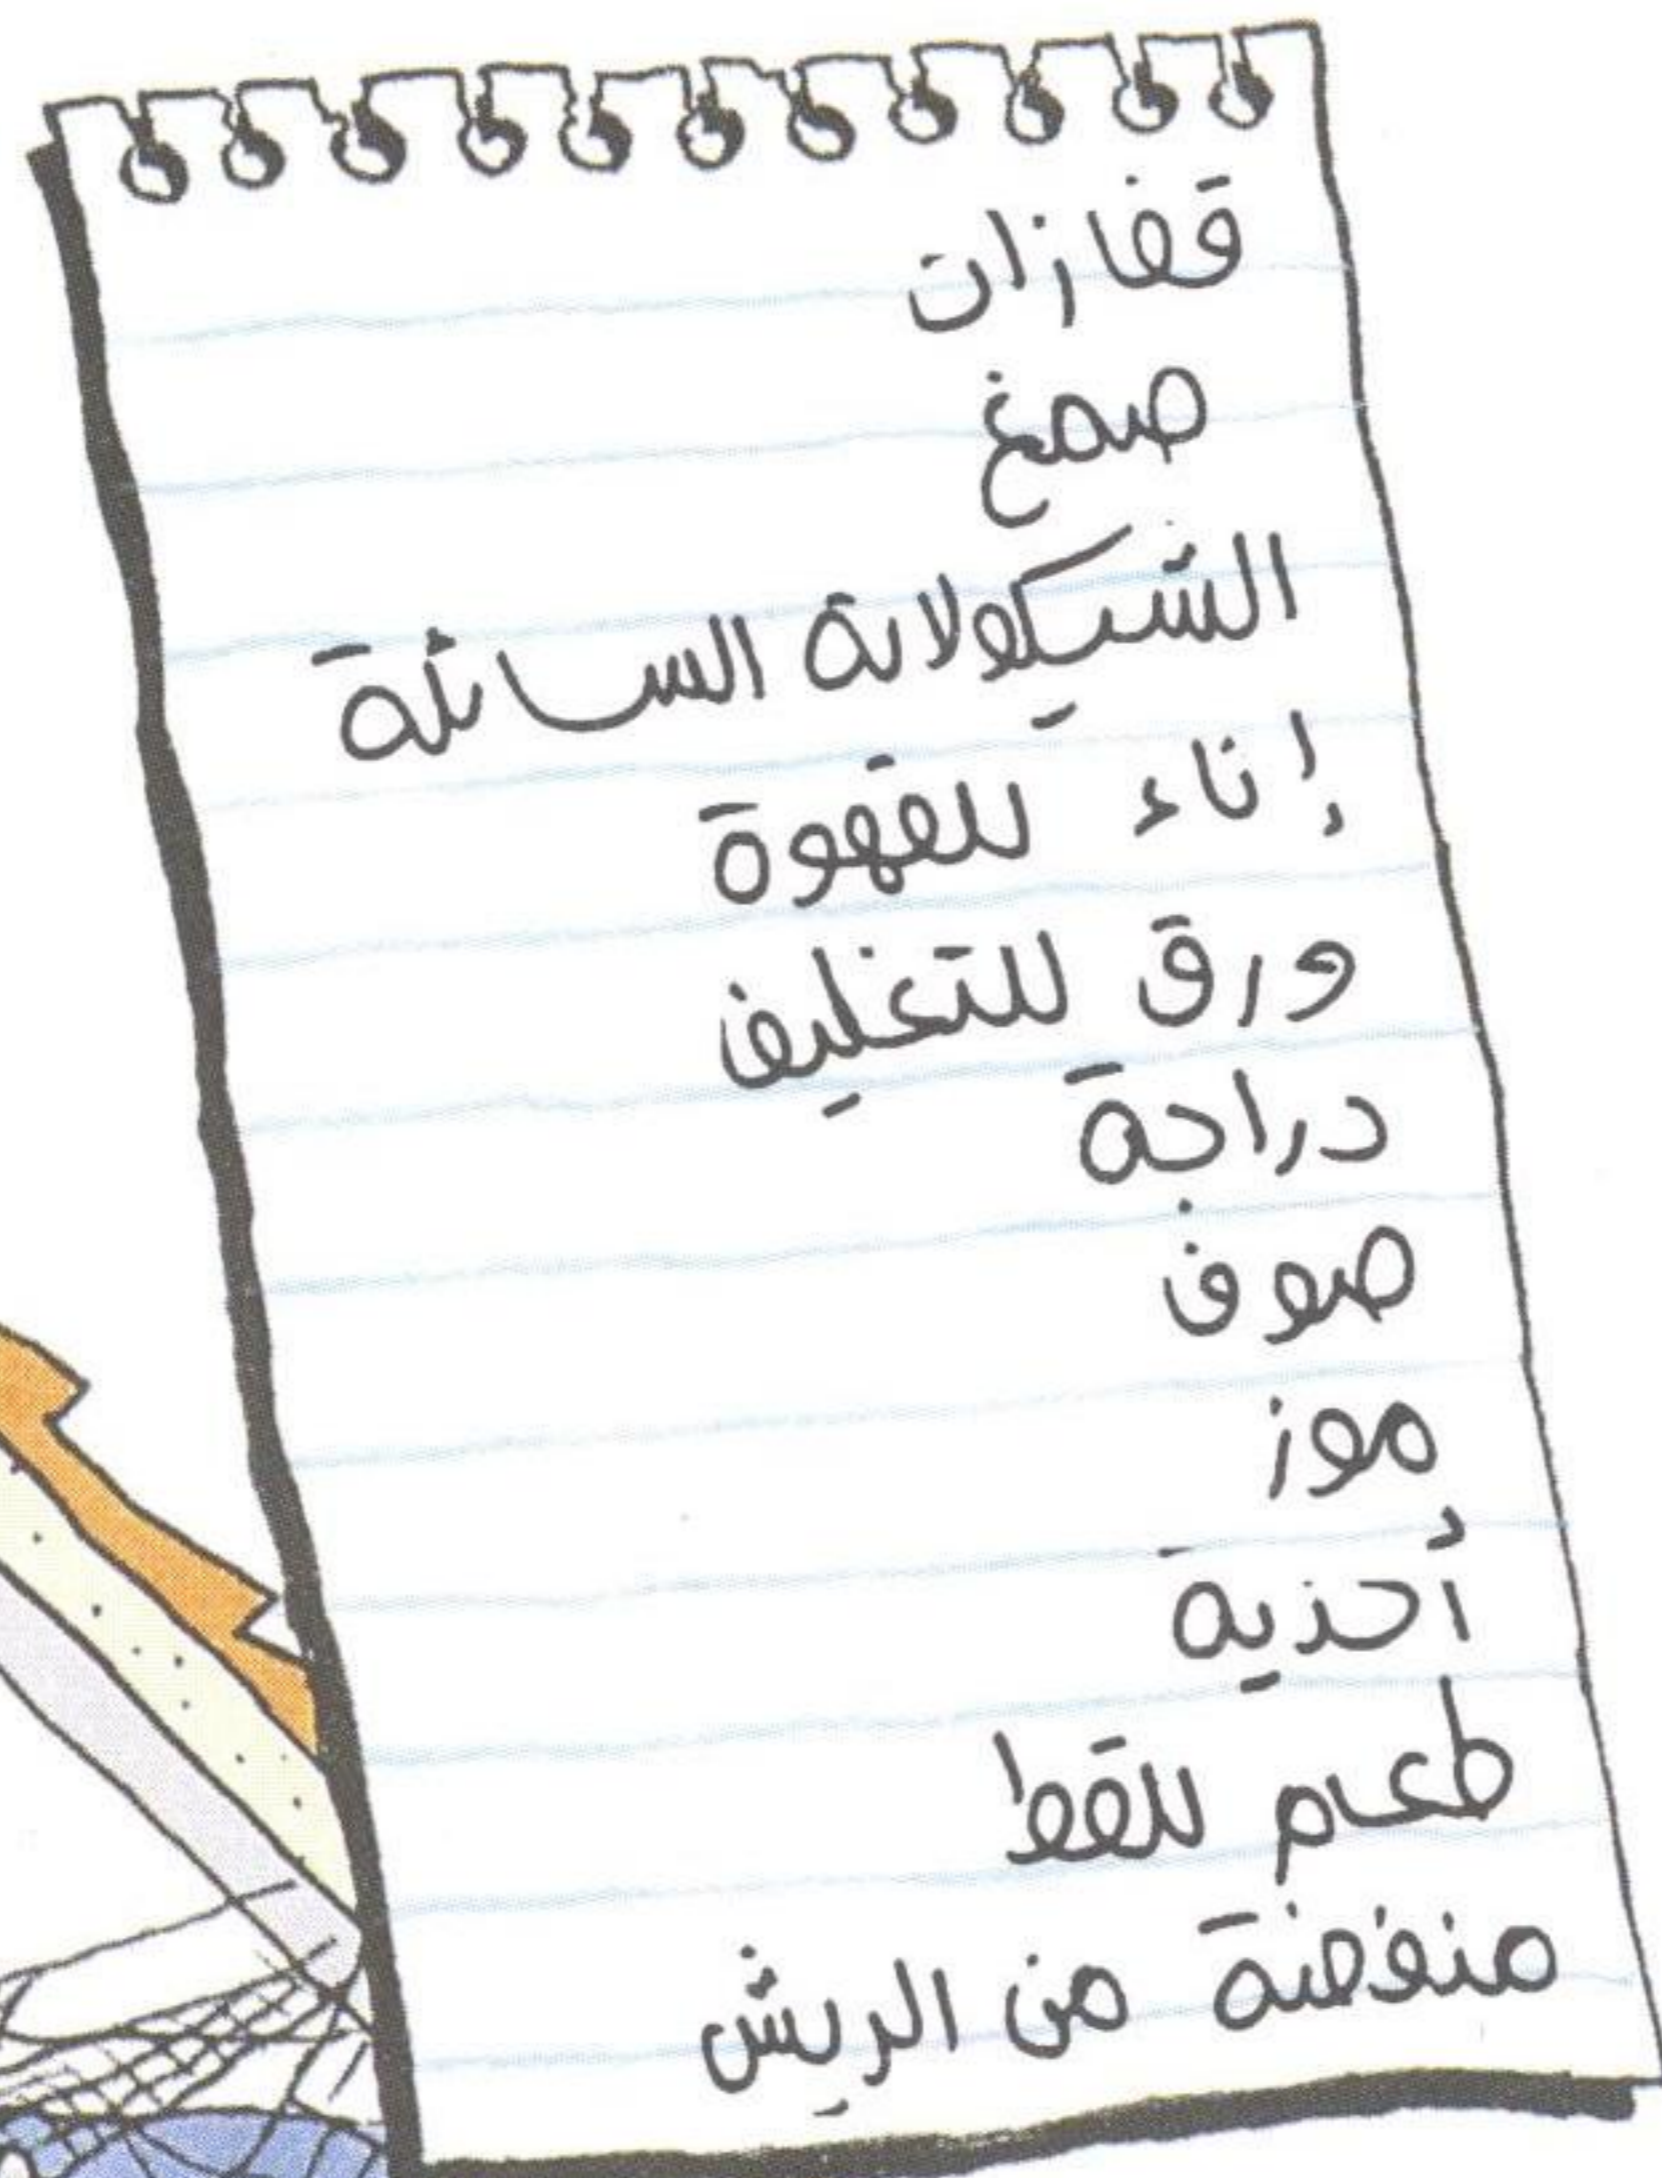 قفازات
صمغ
الشيكولاتة السائلة
إناء للقهوة
ورق للتغليف
دراجة
صوف
موز
أحذية
طعام للقط
منفضة من الريش